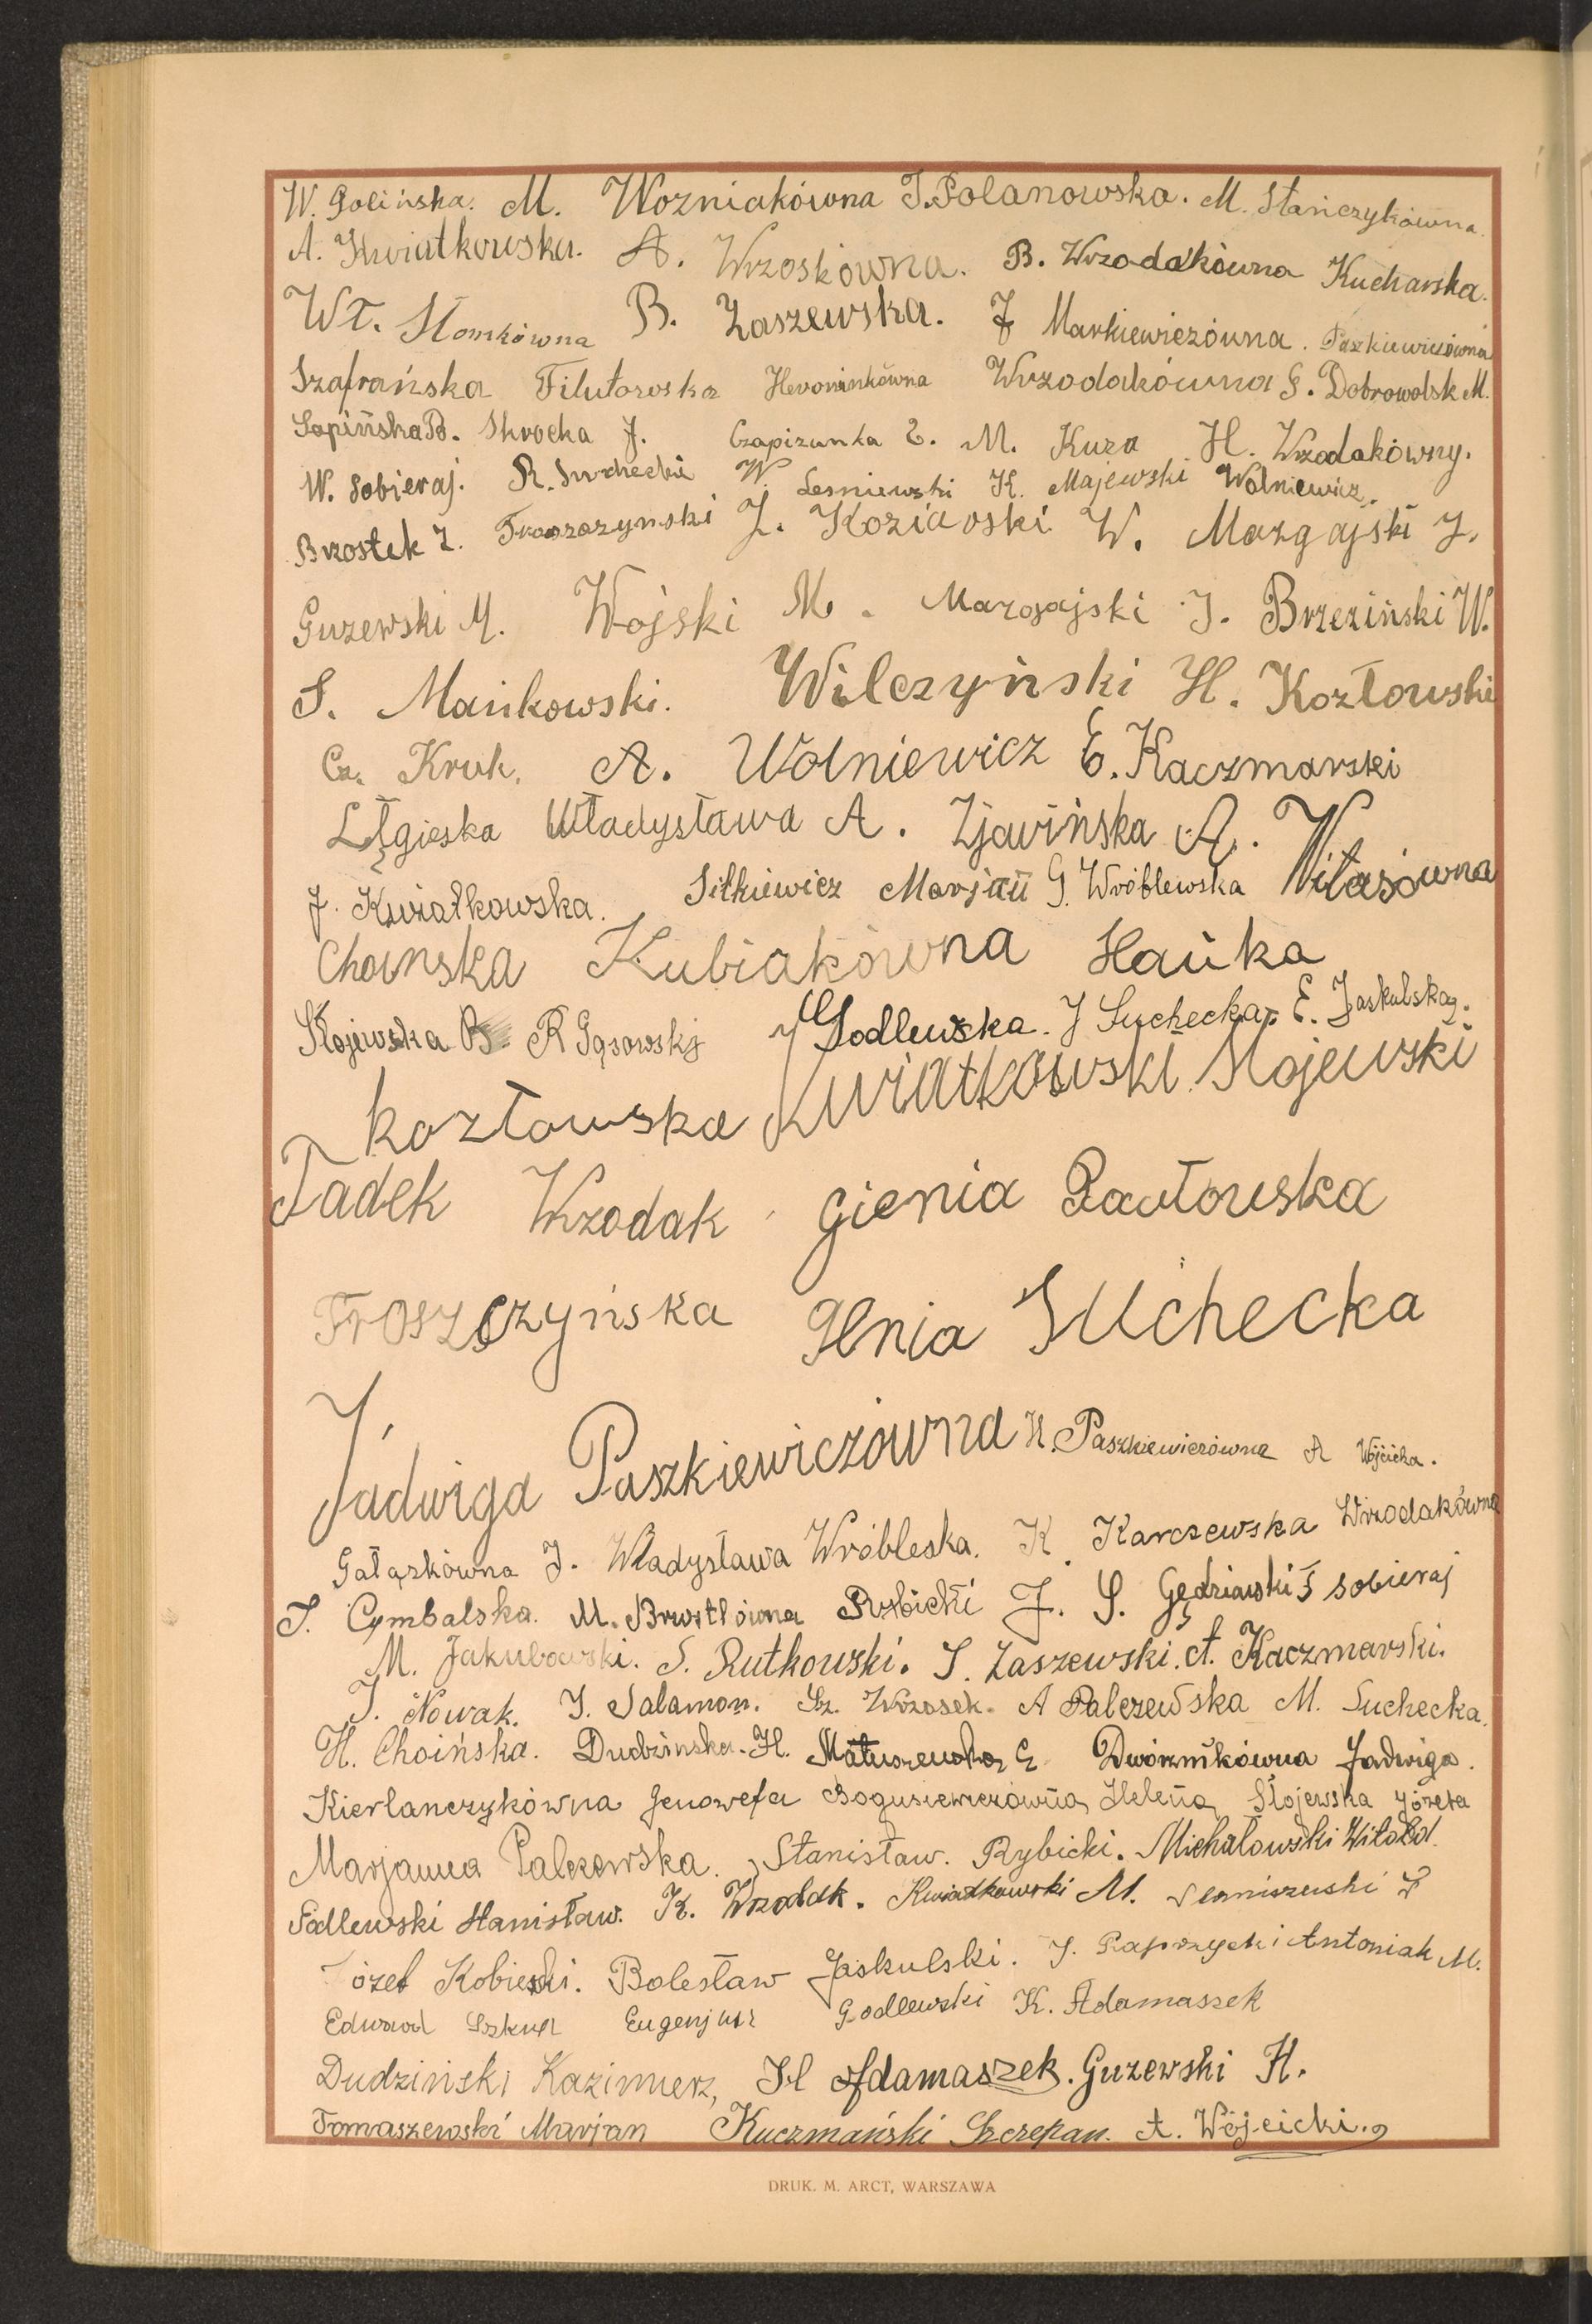 W. Golińska. M. Wozniakówna J. Polanowska. M. Stańczykówna.
A. Kwiatkowska. A. Wrzoskówna. B. Wrzodakówna Kucharska.
Wł. Słomkówna B. Zaszewska. J Markiewiczówna. Paszkiewiczówna
Szafrańska Filutowska Wrzodakówna G. Dobrowolsk M.
Sapińska B. Skrocka J. M. Kuza H. Wrzodakówny.
W. Sobieraj. R. Suchecki W. Lesniewski K. Majewski Wolniewicz.
Brostek Z. Troszczynski J. W. Mazgajski J.
Guzewski M. Wojski M. Mazgajski J. Brzeziński W.
S. Mańkowski. Wilczyński H. Kozłowski
Cz. Kruk. A. Wolniewicz E. Kaczmarski
Władysława A. Zjawińska A. Witasówna
J. Kwiatkowska. Sitkiewicz Marjan G. Wróblewska
Choinska Kubiakówna Hanka
Stojewska B R Gąsowski J Godlewska. J Suchecka. E. Jaskulska.
Kozłowska Kwiatkowski Stojewski
Tadek Wrzodak Gienia Pawłowska
Troszczyńska Henia Suchecka
J.
Jadwiga Paszkiewiczówna H. Paszkiewiczówna A Wójcicka.
Gałązkówna J. Władysława Wróbleska. K. Karczewska Wrzodakówna
J. Cymbalska. M. Rybicki J. S. Gędziawski S Sobieraj
M. Jakubowski. S. Rutkowski. S. Zaszewski. A. Kaczmarski.
J. Nowak. J. Salamon. Sz. Wrzosek. A Palczewska M. Suchecka.
H. Choińska. Dudzinska. H. Matuszewska E Dwórznikówna Jadwiga.
Kierlanczykówna Genowefa Bogusiewiczówna Helena Stojewska Józefa
Marjanna Palczewska. Stanisław. Rybicki. Michałowski Witold.
Godlewski Stanisław. K. Wrzodak. Kwiatkowski M.
Józef Bolesław Jaskulski. J. Paprzycki Antoniak M.
Edward Eugenjusz Godlewski K. Adamaszek
Dudzinski Kazimierz, H Adamaszek. Guzewski H.
Tomaszewski Marjan Kuczmański Szczepan. A. Wójcicki.
DRUK. M. ARCT, WARSZAWA